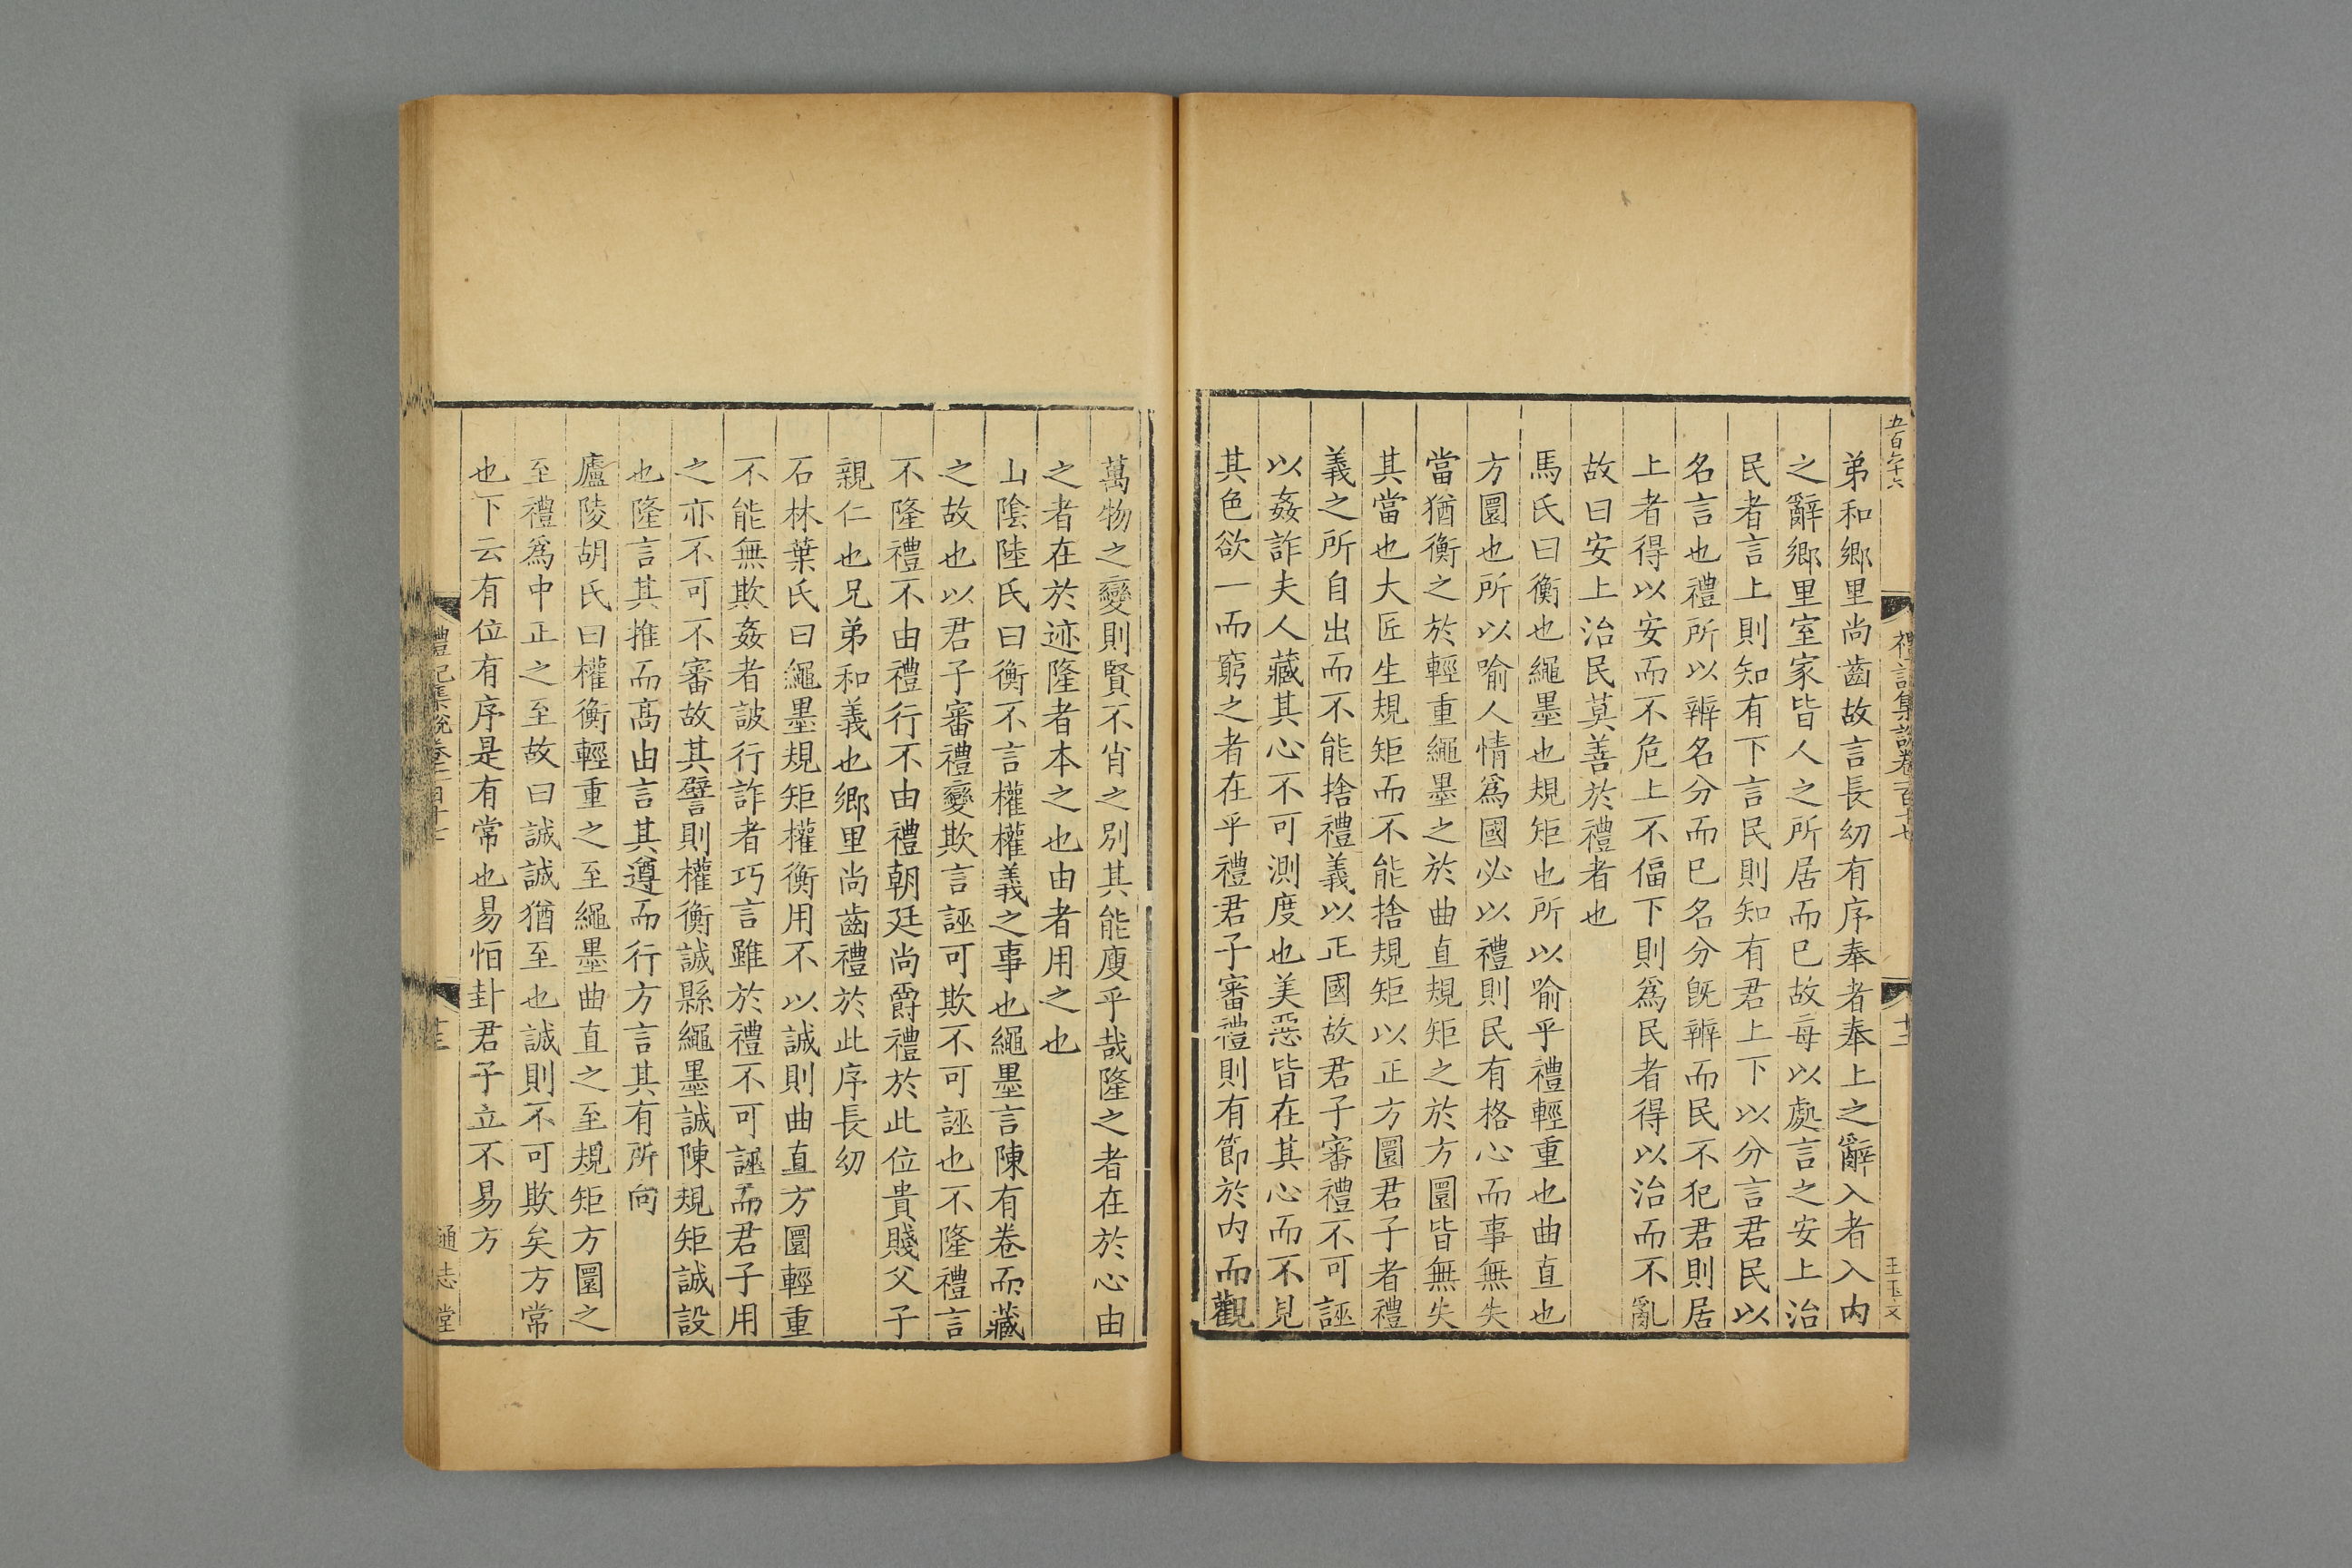 五百六十六
禮記集說卷一百十七
十二
王玉文
弟和鄉里尚齒故言長幼有序奉者奉上之辭入者入内
之辭鄉里室家皆人之所居而已故毎以處言之安上治
民者言上則知有下言民則知有君上下以分言君民以
名言也禮所以辨名分而已名分旣辨而民不犯君則居
上者得以安而不危上不偪下則爲民者得以治而不亂
故曰安上治民莫善於禮者也
馬氏曰衡也繩墨也規矩也所以喻乎禮輕重也曲直也
方圜也所以喻人情爲國必以禮則民有格心而事無失
當猶衡之於輕重繩墨之於曲直規矩之於方圜皆無失
其當也大匠生規矩而不能捨規矩以正方圜君子者禮
義之所自出而不能捨禮義以正國故君子審禮不可誣
以姦詐夫人藏其心不可測度也美惡皆在其心而不見
其色欲一而窮之者在乎禮君子審禮則有節於内而觀
萬物之變則賢不肖之別其能廋乎哉隆之者在於心由
之者在於迹隆者本之也由者用之也
山隂陸氏曰衡不言權權義之事也繩墨言陳有卷而藏
之故也以君子審禮變欺言誣可欺不可誣也不隆禮言
不隆禮不由禮行不由禮朝廷尚爵禮於此位貴賤父子
親仁也兄弟和義也鄉里尚齒禮於此序長幼
石林葉氏曰繩墨規矩權衡用不以誠則曲直方圜輕重
不能無欺姦者詖行詐者巧言雖於禮不可誣而君子用
之亦不可不審故其譬則權衡誠縣繩墨誠陳規矩誠設
也隆言其推而髙由言其遵而行方言其有所向
廬陵胡氏曰權衡輕重之至繩墨曲直之至規矩方圜之
至禮爲中正之至故曰誠誠猶至也誠則不可欺矣方常
也下云有位有序是有常也易恒卦君子立不易方
禮記集說卷一百十七
十三
通志堂